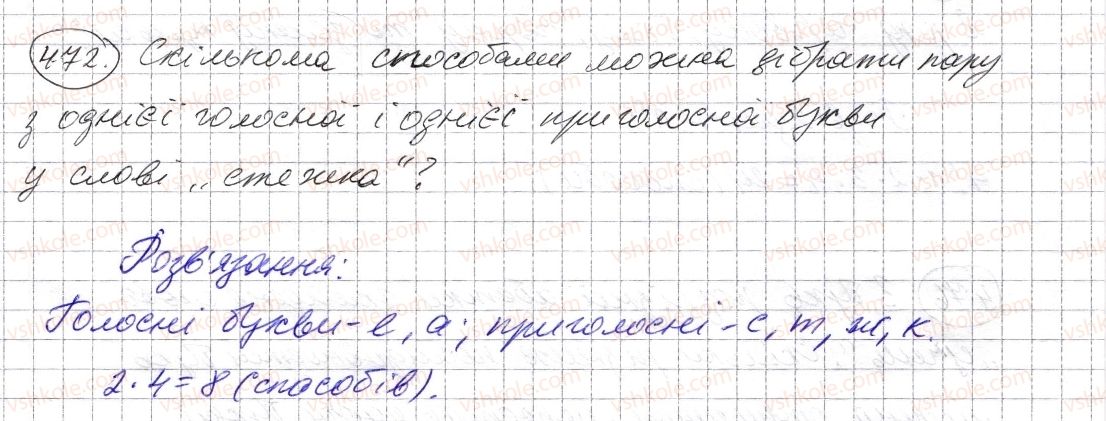 472. Скількома способами можна дібрати пару
з однієї голосної і однієї приголосної букви
у слові „стежка“?
Розв'язання:
Голосні букви - е, а; приголосні - с, т, ж, к.
2 · 4 = 8 (способів).